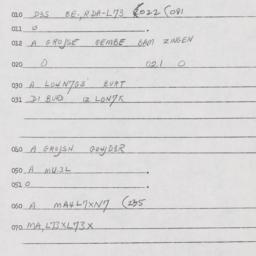 010 D3S BE., RDA-L73 (022 (081
011 0 .
012 A GROJSE GEMBE BAM ZINGEN
020 0 021 0
030 A LOWN7GS BURT
031 DI BURD IZ LON7K
040 A GROJSN
050 A MUJL .
051 0 .
060 A MA4L7XN7 (235
070 MA,L73XL73X